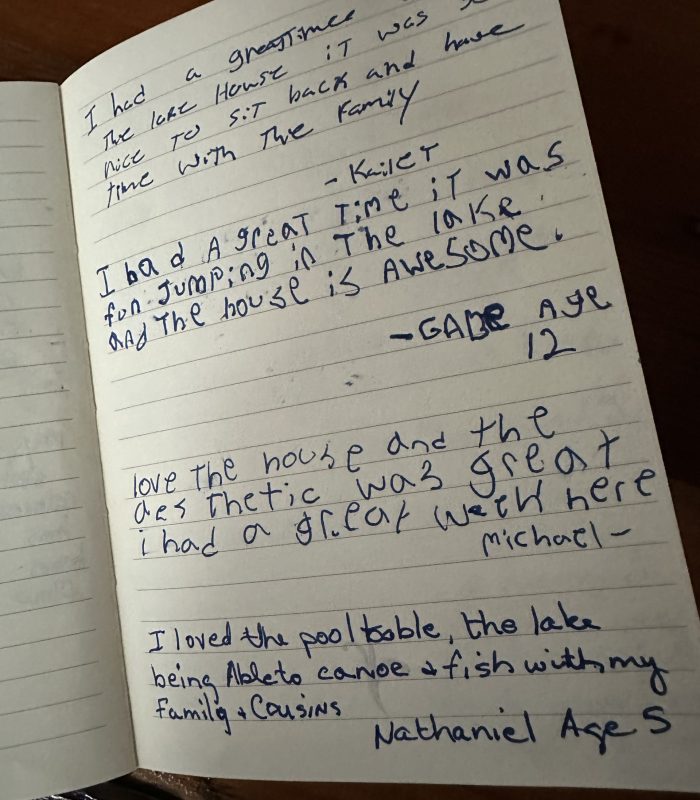 I had a great Time
The lake House iT was
nice TO SiT back and have
time with The Family
- Kailet
I had A great Time iT was
fun Jumping in The lake.
and The house is AWeSOMe.
- GABE Age
12
love the house and the
aesthetic was great
i had a great week here
Michael -
I loved the pool table, the lake
being Able to canoe & fish with my
Family & Cousins
Nathaniel Age 5